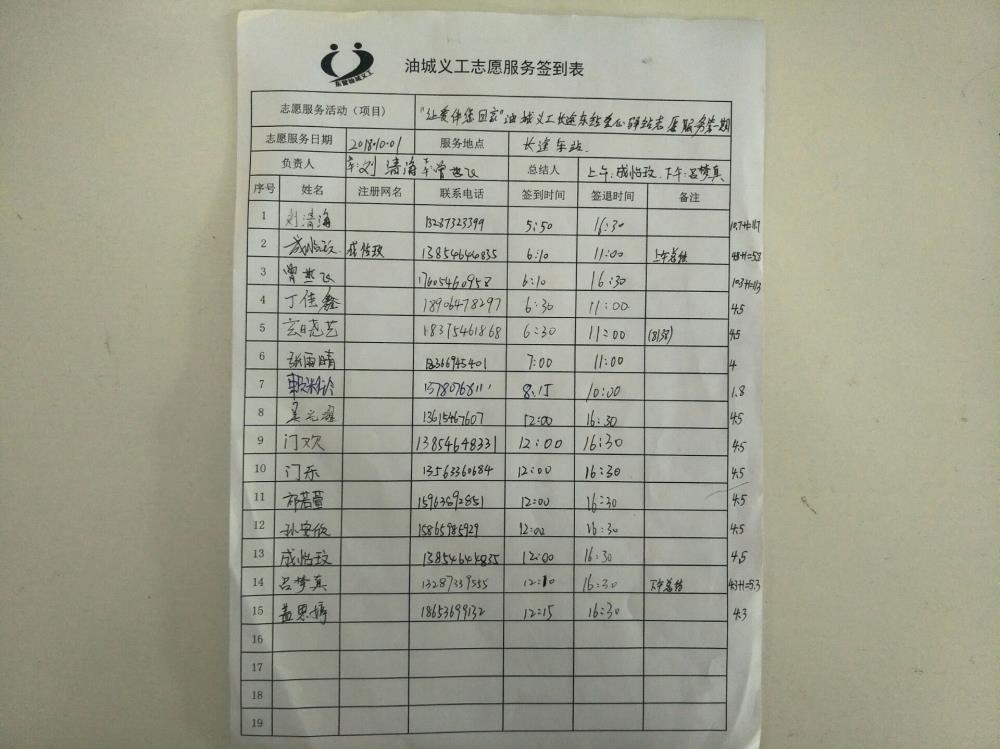 油城义工志愿服务签到表
志愿服务活动（项目） "让爱伴您回家"油城义工长途车站爱心驿站志愿服务第一期
志愿服务日期 2018.10.01 服务地点 长途车站.
负责人 刘清海 曾世飞 总结人 上午:成怡玟.下午:吕梦真
序号 姓名 注册网名 联系电话 签到时间 签退时间 备注
1 刘清海 13287323399 5:50 16:30
2 成怡玟. 成怡玟 13854644835 6:10 11:00 上午总结 4.8+1=5.8
3 曾世飞 17605460958 6:10 16:30 10.3+1=11.3
4 丁佳鑫 18906478297 6:30 11:00 4.5
5 玄晓艺 18375461868 6:30 11:00 4.5
6 张雨晴 18366945401 7:00 11:00 4
7 8:15 10:00 1.8
8 13615467607 12:00 16:30 4.5
9 门欢 13854648331 12:00 16:30 4.5
10 门乐 13563360684 12:00 16:30 4.5
11 祁若萱 15963892851 12:00 16:30 4.5
12 15865985929 12:00 16:30 4.5
13 成怡玟 13854644835 12:00 16:30 4.5
14 吕梦真 13287339555 12:10 16:30 下午总结 4.3+1=5.3
15 盖思婷 18653699132 12:15 16:30 4.3
16
17
18
19